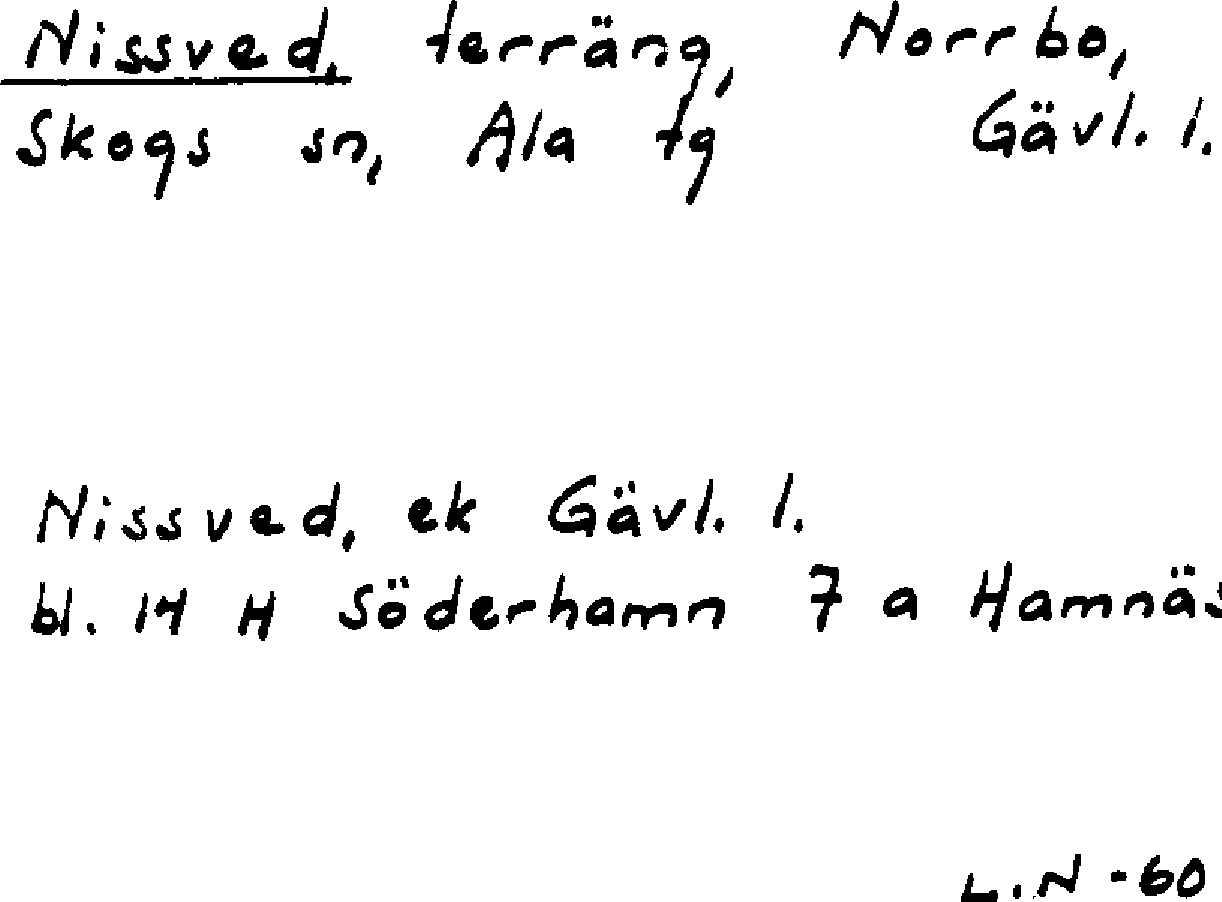 Nissved, terräng, Norrbo,
Skogs sn, Ala tg Gävl. l.
Nissved, ek Gävl. l.
bl. 14 H Söderhamn 7 a Hamnäs
L.N -60